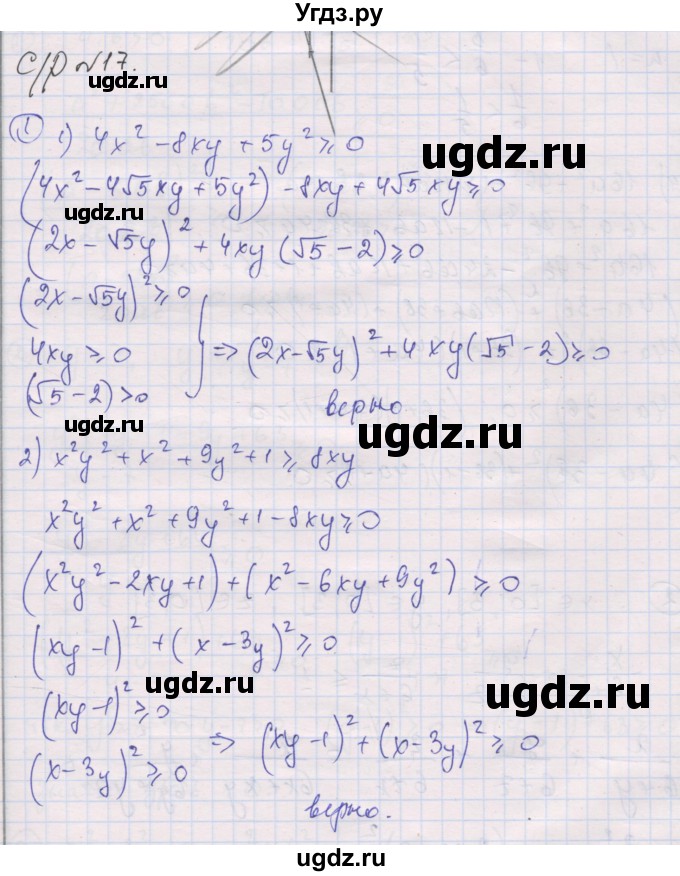 Угдз.ру
С/р №17.
① 1) 4x² - 8xy + 5y² ≥ 0
ugdz.ru
(4x² - 4√5xy + 5y²) - 8xy + 4√5xy ≥ 0
ugdz.ru
(2x - √5y)² + 4xy(√5 - 2) ≥ 0
(2x - √5y)² ≥ 0
4xy ≥ 0
(√5 - 2) > 0
} => (2x - √5y)² + 4xy(√5 - 2) ≥ 0
верно
ugdz.ru
ugdz.ru
2) x²y² + x² + 9y² + 1 ≥ 8xy
x²y² + x² + 9y² + 1 - 8xy ≥ 0
ugdz.ru
(x²y² - 2xy + 1) + (x² - 6xy + 9y²) ≥ 0
(xy - 1)² + (x - 3y)² ≥ 0
ugdz.ru
ugdz.ru
(xy - 1)² ≥ 0
(x - 3y)² ≥ 0
=> (xy - 1)² + (x - 3y)² ≥ 0
верно.
ugdz.ru
ugdz.ru